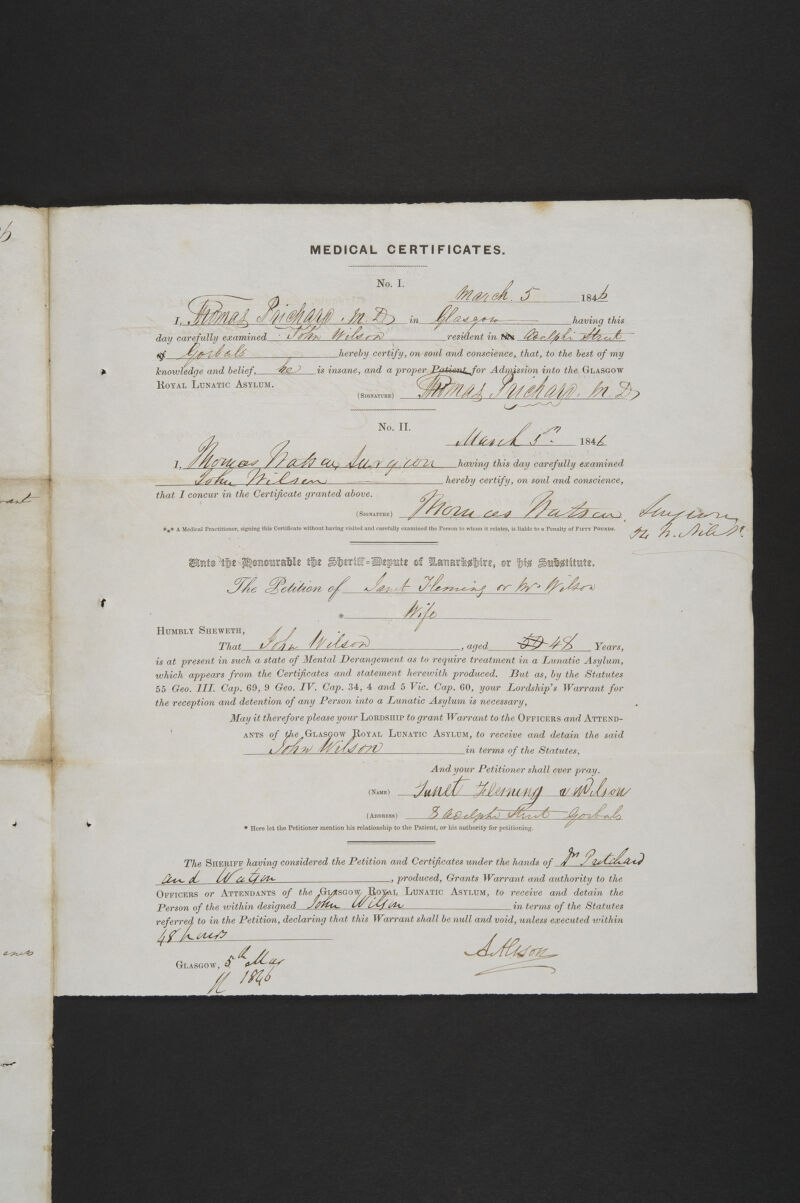 MEDICAL CERTIFICATES.
No. I.
March 5 1846
I, Thomas Prichard M.D in Glasgow having this
day carefully examined John Wilson resident in Adelphi Street
Gorbals hereby certify, on soul and conscience, that, to the best of my
knowledge and belief, he is insane, and a proper Patient for Admission into the GLASGOW
ROYAL LUNATIC ASYLUM.
(SIGNATURE) Thomas Prichard. M.D
No. II.
March 5th 1846
I, Thomas Watson Surgeon having this day carefully examined
John Wilson hereby certify, on soul and conscience,
that I concur in the Certificate granted above.
(SIGNATURE) Thomas Watson, Surgeon
N. Nile St.
*** A Medical Practitioner, signing this Certificate without having visited and carefully examined the Person to whom it relates, is liable to a Penalty of FIFTY POUNDS.
Unto the Honourable the Sheriff-Depute of Lanarkshire, or his Substitute.
The Petition of Janet Fleming or Mrs Wilson
* Wife
HUMBLY SHEWETH,
That John Wilson, aged 50 48 Years,
is at present in such a state of Mental Derangement as to require treatment in a Lunatic Asylum,
which appears from the Certificates and statement herewith produced. But as, by the Statutes
55 Geo. III. Cap. 69, 9 Geo. IV. Cap. 34, 4 and 5 Vic. Cap. 60, your Lordship's Warrant for
the reception and detention of any Person into a Lunatic Asylum is necessary,
May it therefore please your LORDSHIP to grant Warrant to the OFFICERS and ATTEND-
ANTS of the GLASGOW ROYAL LUNATIC ASYLUM, to receive and detain the said
John Wilson in terms of the Statutes.
And your Petitioner shall ever pray.
(NAME) Janet Fleming or Wilson
(ADDRESS) 8 Adelphi Street Gorbals
* Here let the Petitioner mention his relationship to the Patient, or his authority for petitioning.
The SHERIFF having considered the Petition and Certificates under the hands of Drs Pritchard
and Watson, produced, Grants Warrant and authority to the
OFFICERS or ATTENDANTS of the GLASGOW ROYAL LUNATIC ASYLUM, to receive and detain the
Person of the within designed John Wilson in terms of the Statutes
referred to in the Petition, declaring that this Warrant shall be null and void, unless executed within
48 hours
GLASGOW, 5th Mar
1846
A Alison